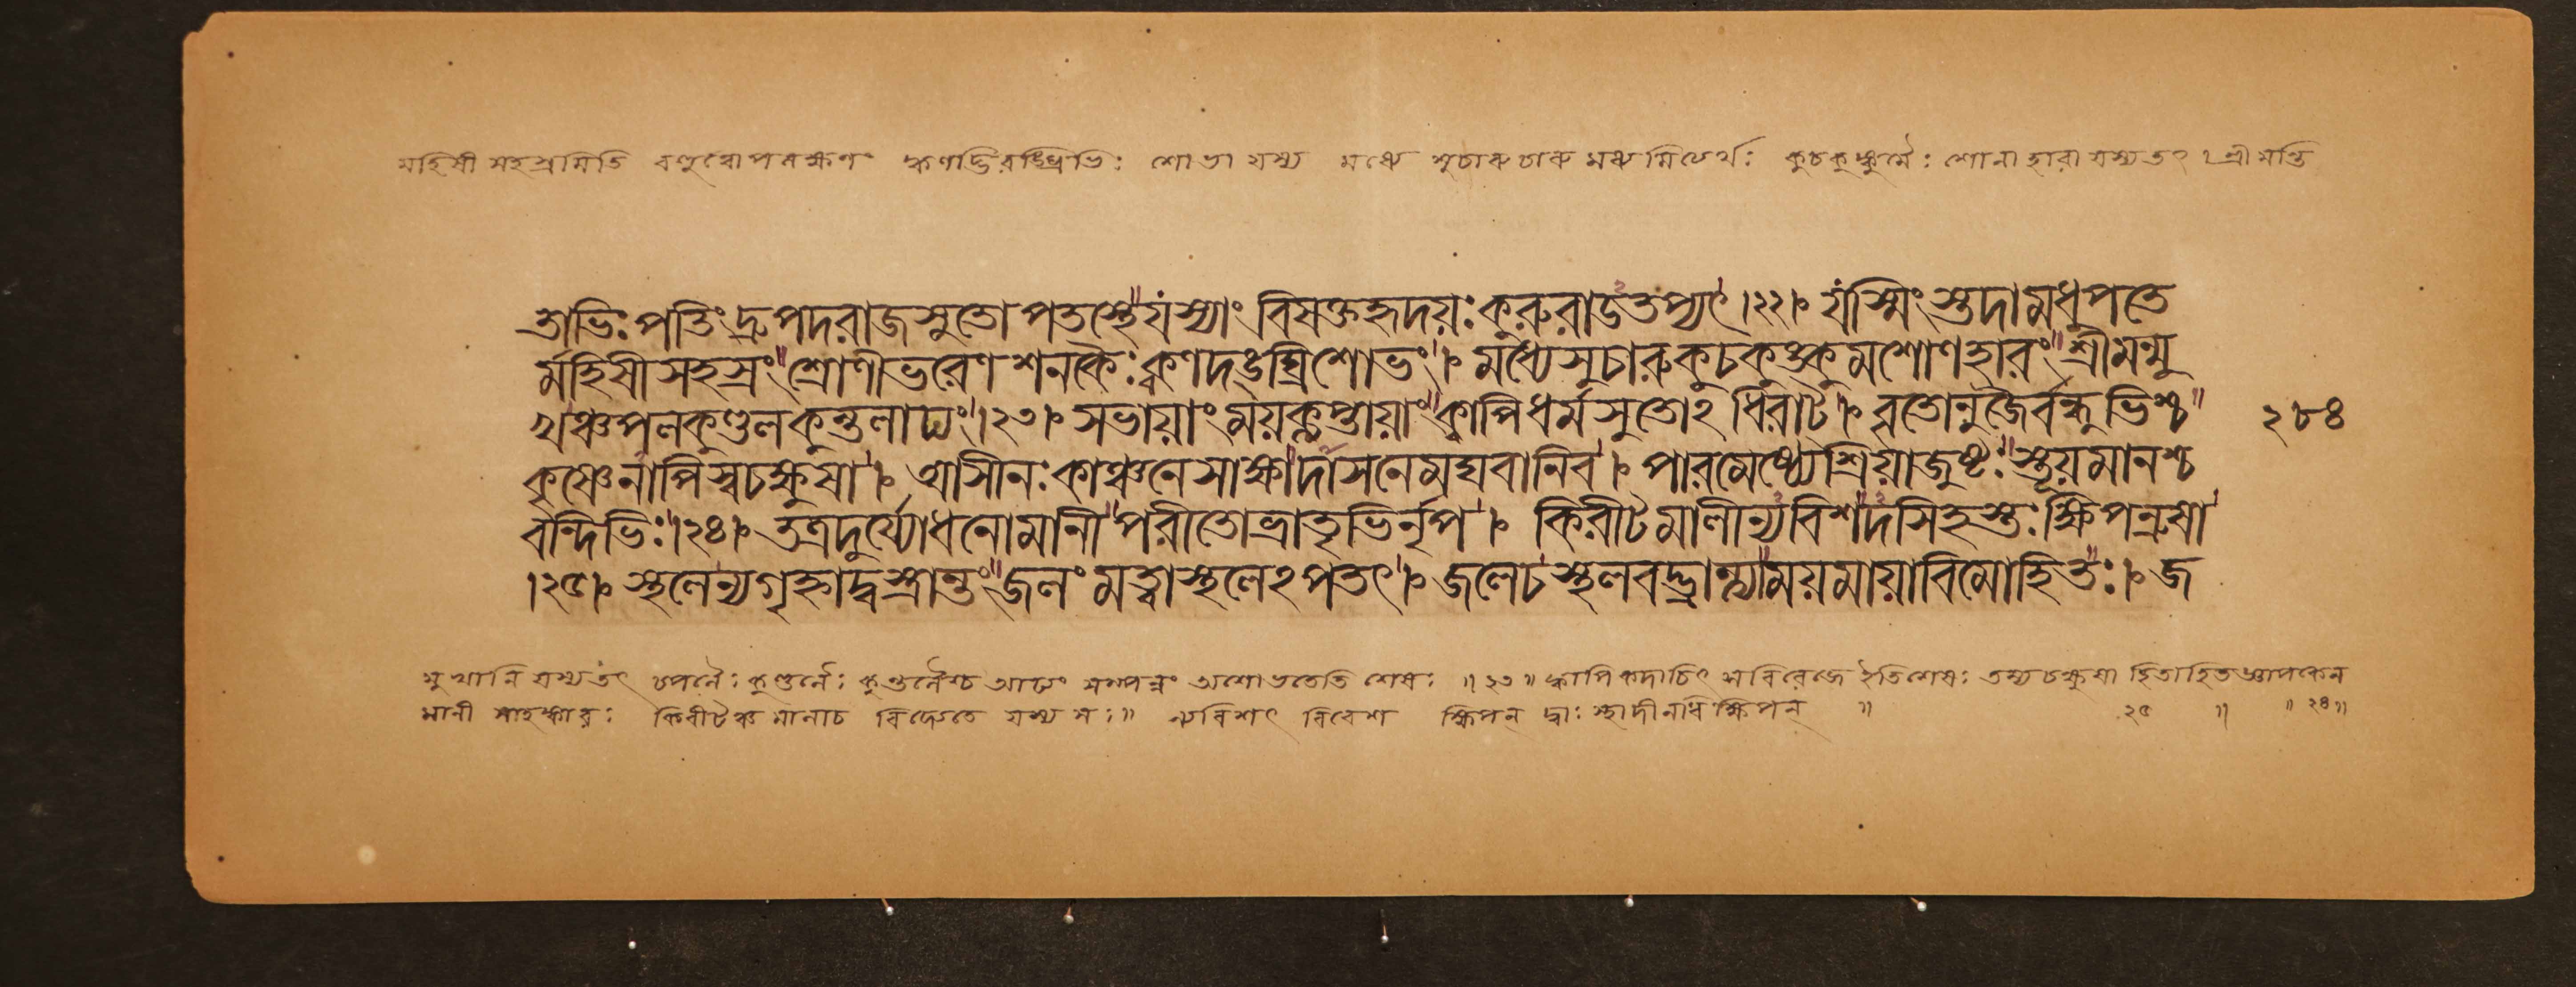 মহিষী সহস্রমিতি বণুৰোপলক্ষণং ক্বণদ্ভিরঙ্ঘ্রিভিঃ শোভা যস্য মধ্যে সুচারু চারু মধ্যমিত্যর্থঃ কুচকুঙ্কুমৈঃ শোনাহারা যস্য তৎ শ্রীমন্তি
তাভিঃ পতিং দ্রুপদরাজসুতোপতস্থে যস্যাং বিষক্তহৃদয়ঃ কুরুরাডতপ্যৎ ।২২। যস্মিংস্তদামধুপতে
র্মহিষীসহস্রং শ্রোণীভরেণ শনকৈঃ ক্বণদঙ্ঘ্রিশোভং । মধ্যেসুচারুকুচকুঙ্কুমশোণহারং শ্রীমন্মু
খঞ্চপলকুণ্ডলকুন্তলাঢ্যং ।২৩। সভায়াং ময়কৢপ্তায়াং ক্বাপিধর্মসুতোঽধিরাট্ । বৃতোনুজৈর্বন্ধুভিশ্চ
২৮৪
কৃষ্ণেনাপিস্বচক্ষুষা । আসীনঃ কাঞ্চনেসাক্ষাদাসনেমঘবানিব । পারমেষ্ঠ্যেশ্রিয়াজুষ্টঃ স্তূয়মানশ্চ
বন্দিভিঃ ।২৪। তত্রদুর্য্যোধনোমানী পরীতোভ্রাতৃভির্নৃপ । কিরীটমালীন্যবিশদসিহস্তঃ ক্ষিপন্রুষা
।২৫। স্থলেন্যগৃহ্নাদ্বস্ত্রান্তং জলং মত্বাস্থলেঽপতৎ । জলেচস্থলবদ্ভ্রান্ত্যাময়মায়াবিমোহিতঃ । জ
মুখানি যস্য তৎ চপলৈঃ কুণ্ডলৈঃ কুন্তলৈশ্চ আঢ্যং সম্পন্নং অশোভতেতি শেষঃ ॥ ২৩ ॥ ক্বাপি কদাচিৎ স বিরেজে ইতিশেষঃ তস্য চক্ষুষা হিতাহিতজ্ঞাপকেন
মানী সাহঙ্কারঃ কিরীটঞ্চ মালাচ বিদ্যেতে যস্য সঃ ॥ ন্যবিশৎ বিবেশ ক্ষিপন্ দ্বাঃস্থাদীনধিক্ষিপন্ ॥ ২৫ ॥ ॥ ২৪ ॥